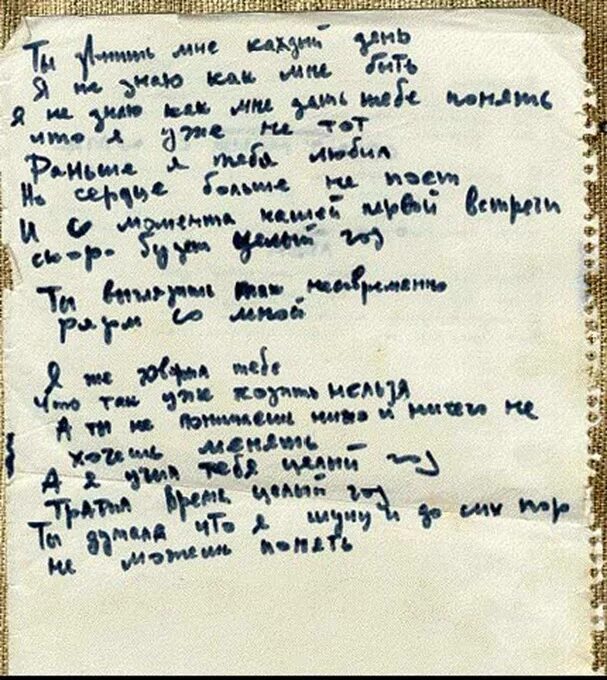 Ты звонишь мне каждый день
Я не знаю как мне быть
Я не знаю как мне дать тебе понять
что я уже не тот
Раньше я тебя любил
Но сердце больше не поет
И с момента нашей первой встречи
скоро будет целый год
Ты выглядишь так несовременно
рядом со мной
Я же говорил тебе
Что так уже ходить нельзя
А ты не понимаешь и ничего не
хочешь менять
А я учил тебя целый год
Тратил время целый год
Ты думала что я шучу и до сих пор
не можешь понять